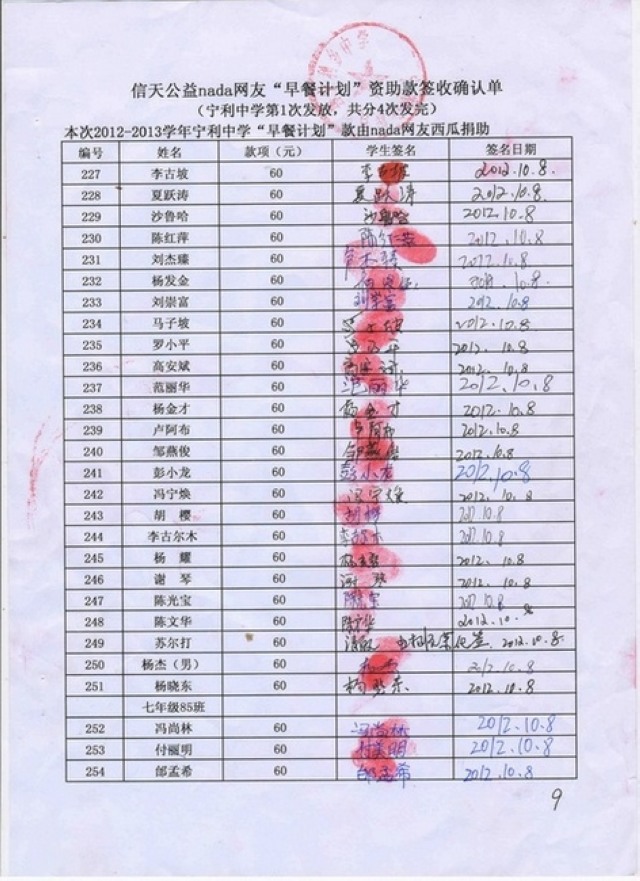 信天公益nada网友“早餐计划”资助款签收确认单
（宁利中学第1次发放，共分4次发完）
本次2012-2013学年宁利中学“早餐计划”款由nada网友西瓜捐助
编号 姓名 款项（元） 学生签名 签名日期
227 李古坡 60 李古坡 2012.10.8.
228 夏跃涛 60 夏跃涛 2012.10.8.
229 沙鲁哈 60 沙鲁哈 2012.10.8
230 陈红萍 60 陈红萍 2012.10.8
231 刘杰臻 60 2012.10.8
232 杨发金 60 10.8
233 刘崇富 60 刘崇富 2012.10.8
234 马子坡 60 2012.10.8
235 罗小平 60 2012.10.8
236 高安斌 60 2012.10.8
237 范丽华 60 范丽华 2012.10.8
238 杨金才 60 杨金才 2012.10.8
239 卢阿布 60 卢阿布 2012.10.8
240 邹燕俊 60 邹燕俊 2012.10.8
241 彭小龙 60 彭小龙 2012.10.8
242 冯宁焕 60 冯宁焕 2012.10.8
243 胡 樱 60 胡樱 10.8
244 李古尔木 60 10.8
245 杨 耀 60 杨耀 2012.10.8
246 谢 琴 60 谢琴 2012.10.8
247 陈光宝 60 陈光宝 10.8
248 陈文华 60 陈文华 2012.10.8
249 苏尔打 60 2012.10.8.
250 杨杰（男） 60 2012.10.8
251 杨晓东 60 杨晓东 2012.10.8
七年级85班
252 冯尚林 60 冯尚林 2012.10.8
253 付丽明 60 2012.10.8
254 邰孟希 60 邰孟希 2012.10.8
9